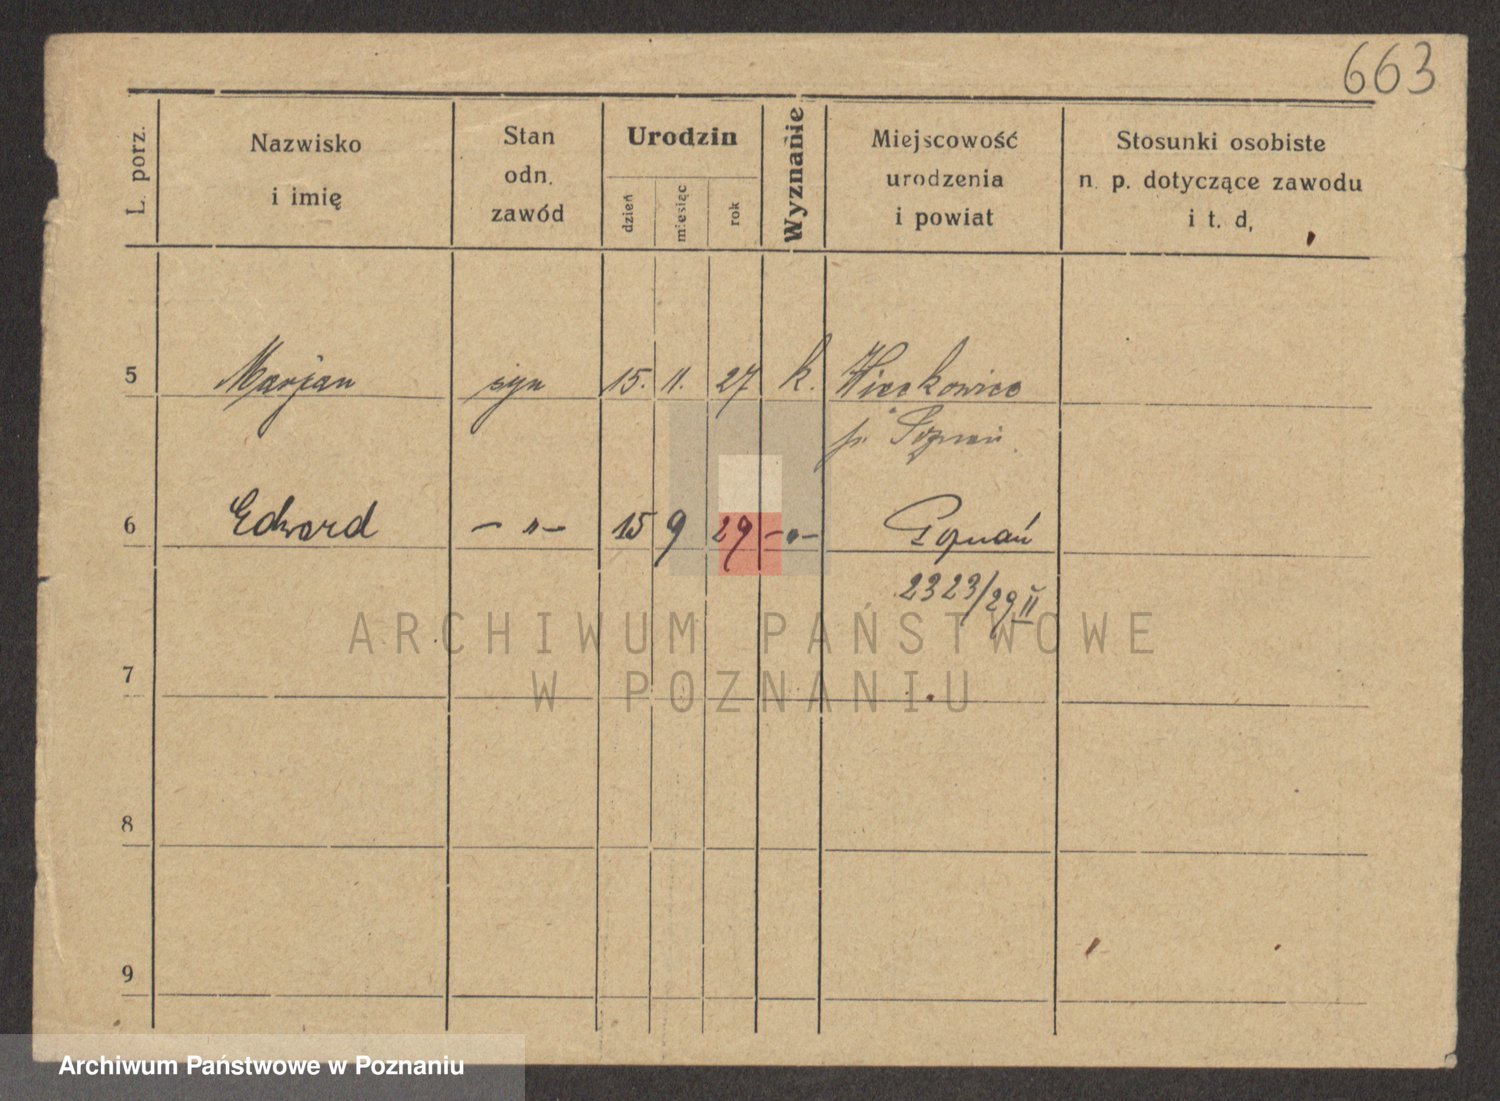 663
L. porz.
Nazwisko
i imię
Stan
odn.
zawód
Urodzin
dzień
miesiąc
rok
Wyznanie
Miejscowość
urodzenia
i powiat
Stosunki osobiste
n. p. dotyczące zawodu
i t. d.
5 Marjan syn 15. 11. 27 k. Więckowice
p. Poznań.
6 Edward — " — 15 9 29 — " — Poznań
2323/29 II
ARCHIWUM PAŃSTWOWE
W POZNANIU
7
8
9
Archiwum Państwowe w Poznaniu